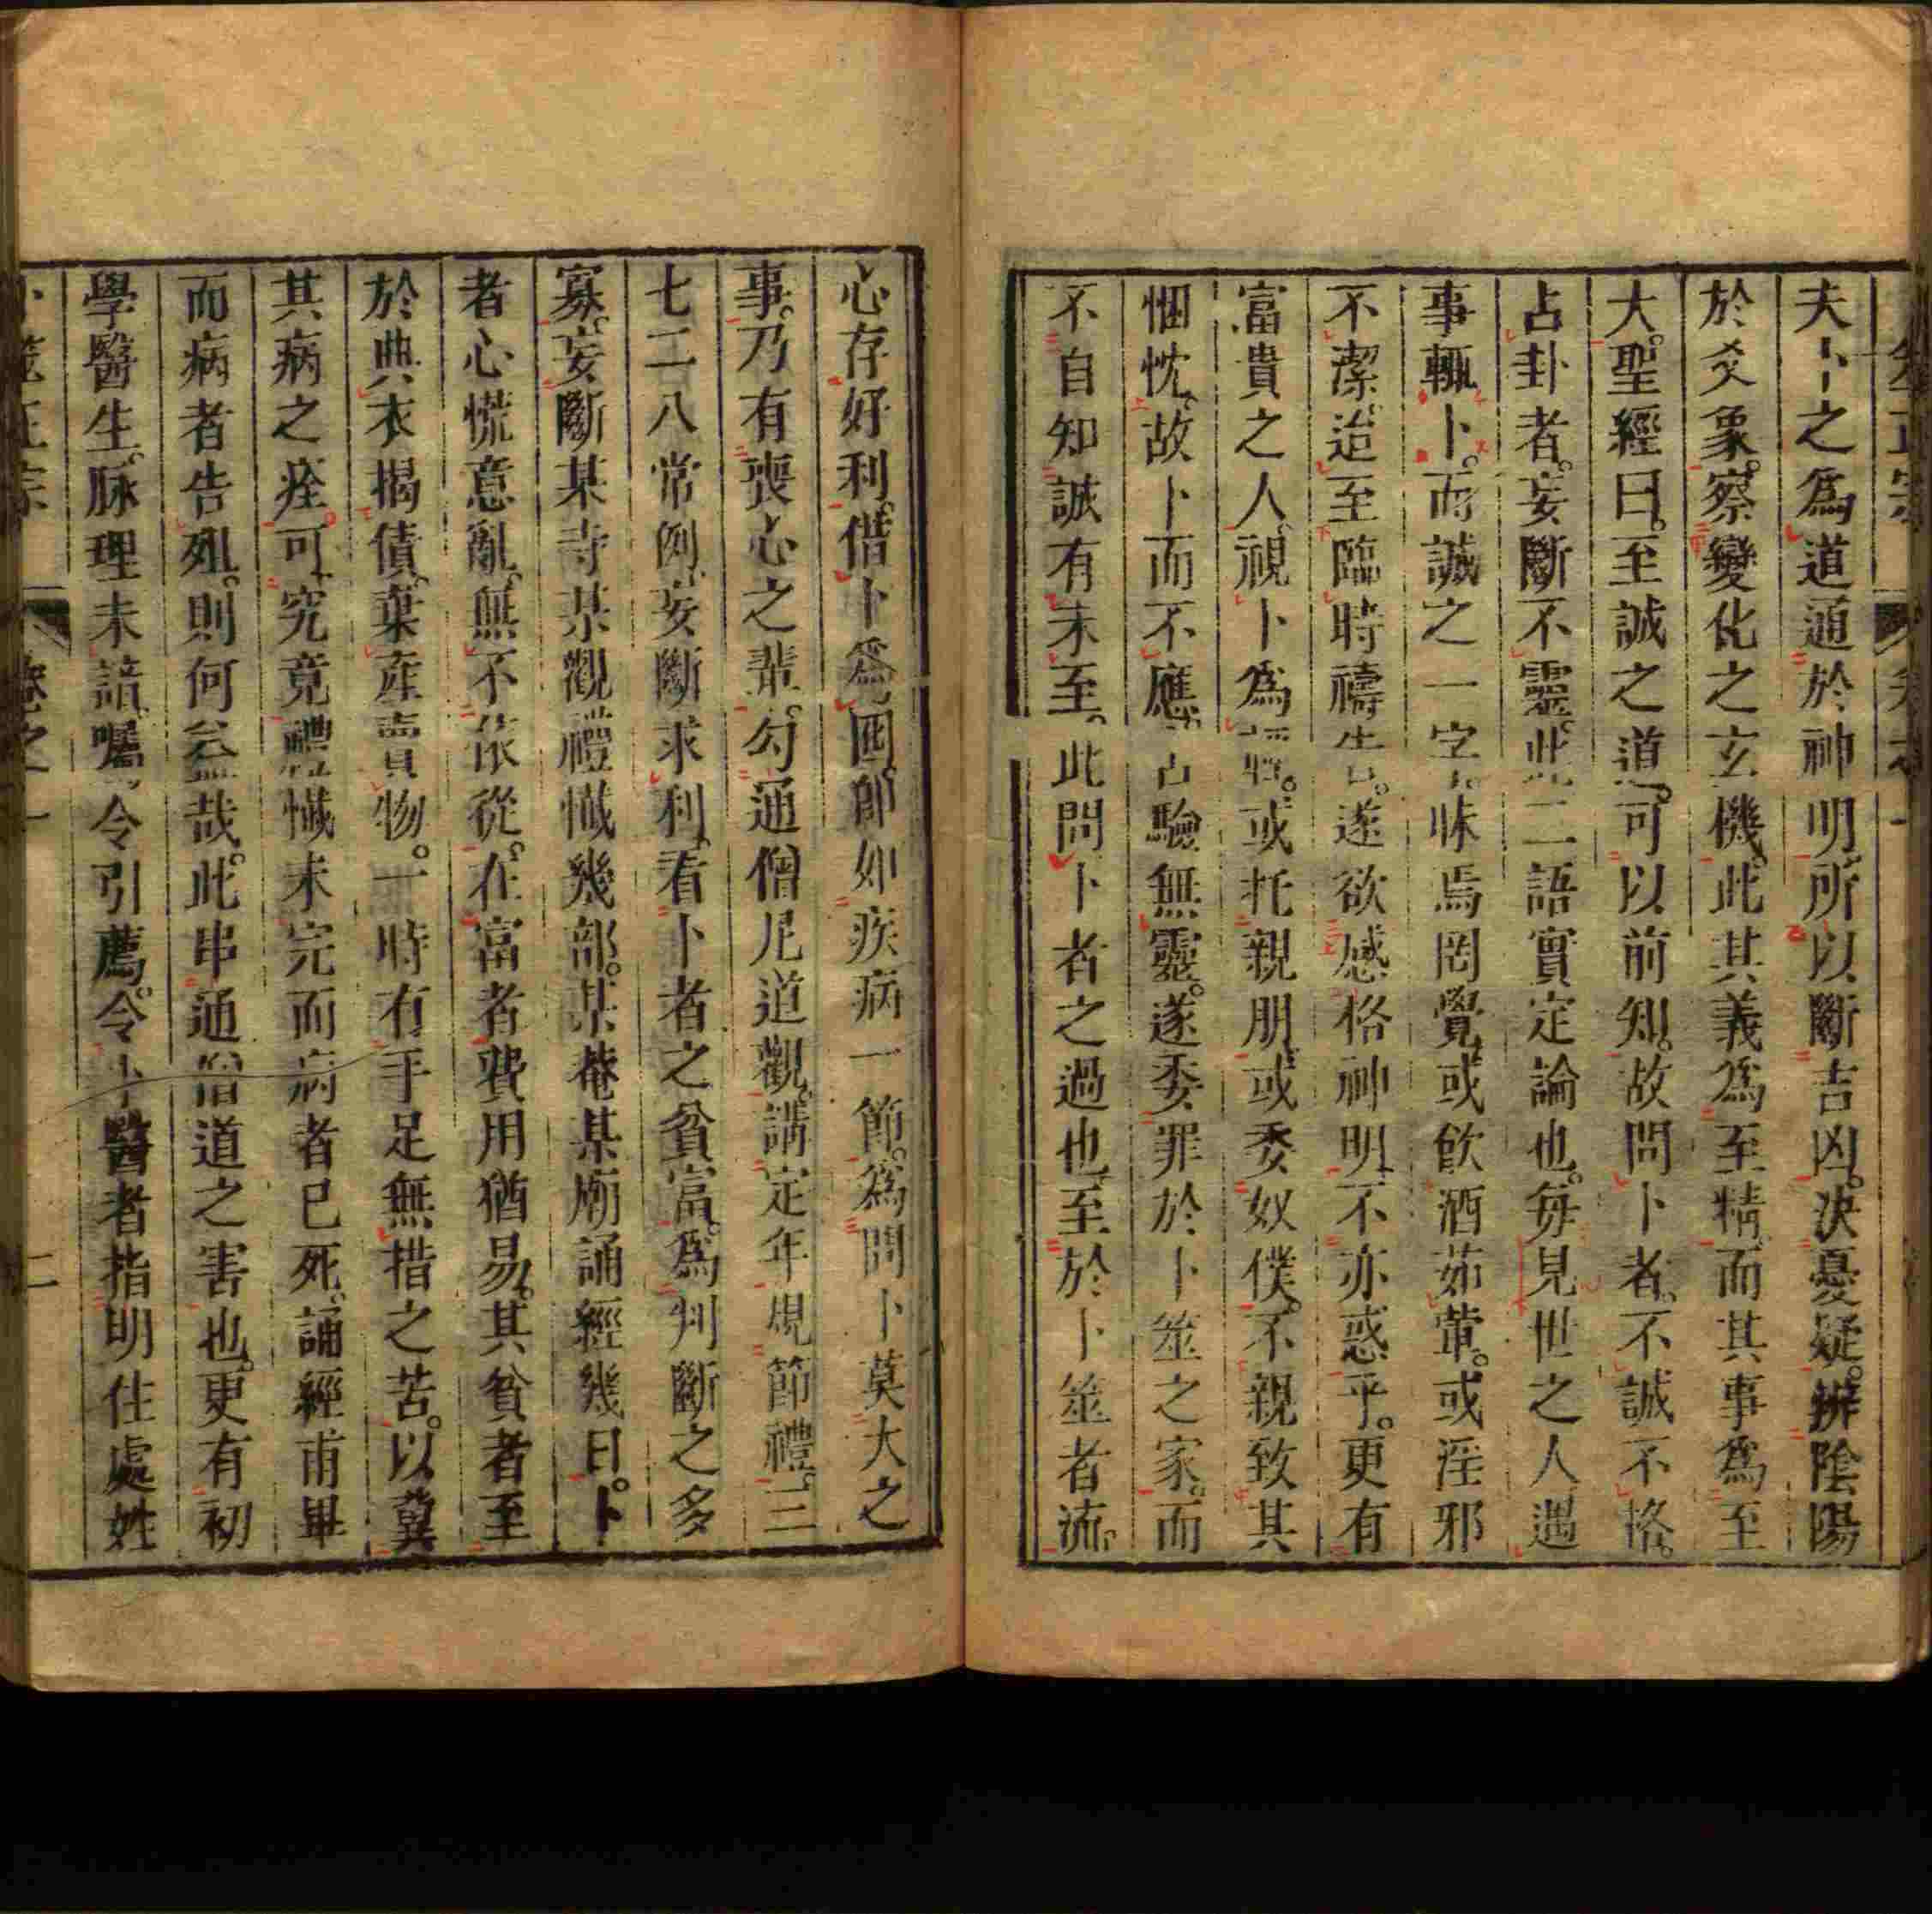 夫卜之爲道通於神明所以斷吉凶。決憂疑。辨陰陽
於爻象。察變化之玄機。此其義爲至精而其事爲至
大。聖經曰。至誠之道。可以前知。故問卜者。不誠不格。
占卦者。妄斷不靈。此二語實定論也。每見世之人遇
事輒卜。而誠之一字。昧焉罔覺或飲酒茹葷。或淫邪
不潔。迨至臨時禱告。遂欲感格神明不亦惑乎。更有
富貴之人。視卜爲。或托親朋。或委奴僕。不親致其
悃忱。故卜而不應占驗無靈。遂委罪於卜筮之家。而
不自知誠有未至。此問卜者之過也。至於卜筮者流。
心存好利。借卜爲囮。卽如疾病一節。爲問卜莫大之
事。乃有喪心之輩。勾通僧尼道觀。講定年規節禮。三
七二八常例。妄斷求利。看卜者之貧富。爲判斷之多
寡。妄斷某寺某觀禮懺幾部。某菴某廟誦經幾日。卜
者心慌意亂。無不依從。在富者費用猶易。其貧者至
於典衣揭債。棄産賣物。一時有手足無措之苦。以冀
其病之痊可。究竟禮懺未完而病者已死。誦經甫畢
而病者告殂。則何益哉。此串通僧道之害也。更有初
學醫生。脉理未諳。囑令引薦。令卜醫者指明住處姓
卜筮正宗 卷之一 二